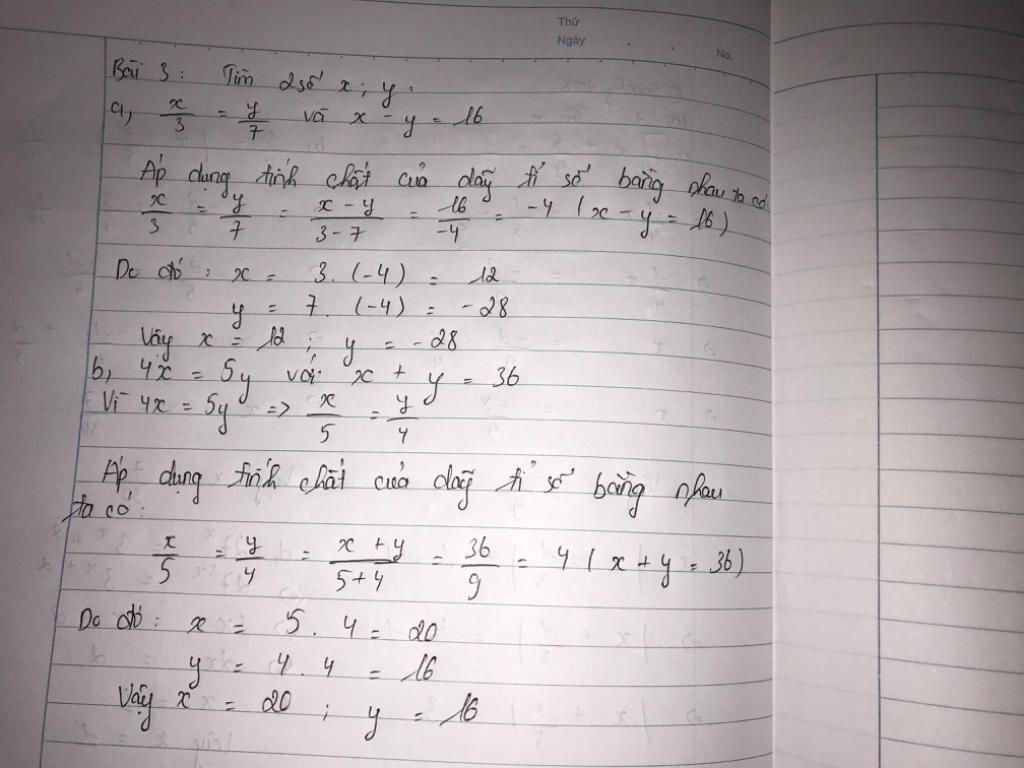 Thứ
Ngày
No.
Bài 3: Tìm 2 số x; y.
a, x/3 = y/7 và x - y = 16
Áp dụng tính chất của dãy tỉ số bằng nhau ta có:
x/3 = y/7 = (x - y)/(3 - 7) = 16/-4 = -4 (x - y = 16)
Do đó: x = 3. (-4) = 12
y = 7. (-4) = -28
Vậy x = 12 ; y = -28
b, 4x = 5y với x + y = 36
Vì 4x = 5y => x/5 = y/4
Áp dụng tính chất của dãy tỉ số bằng nhau
ta có:
x/5 = y/4 = (x + y)/(5 + 4) = 36/9 = 4 (x + y = 36)
Do đó: x = 5. 4 = 20
y = 4. 4 = 16
Vậy x = 20 ; y = 16